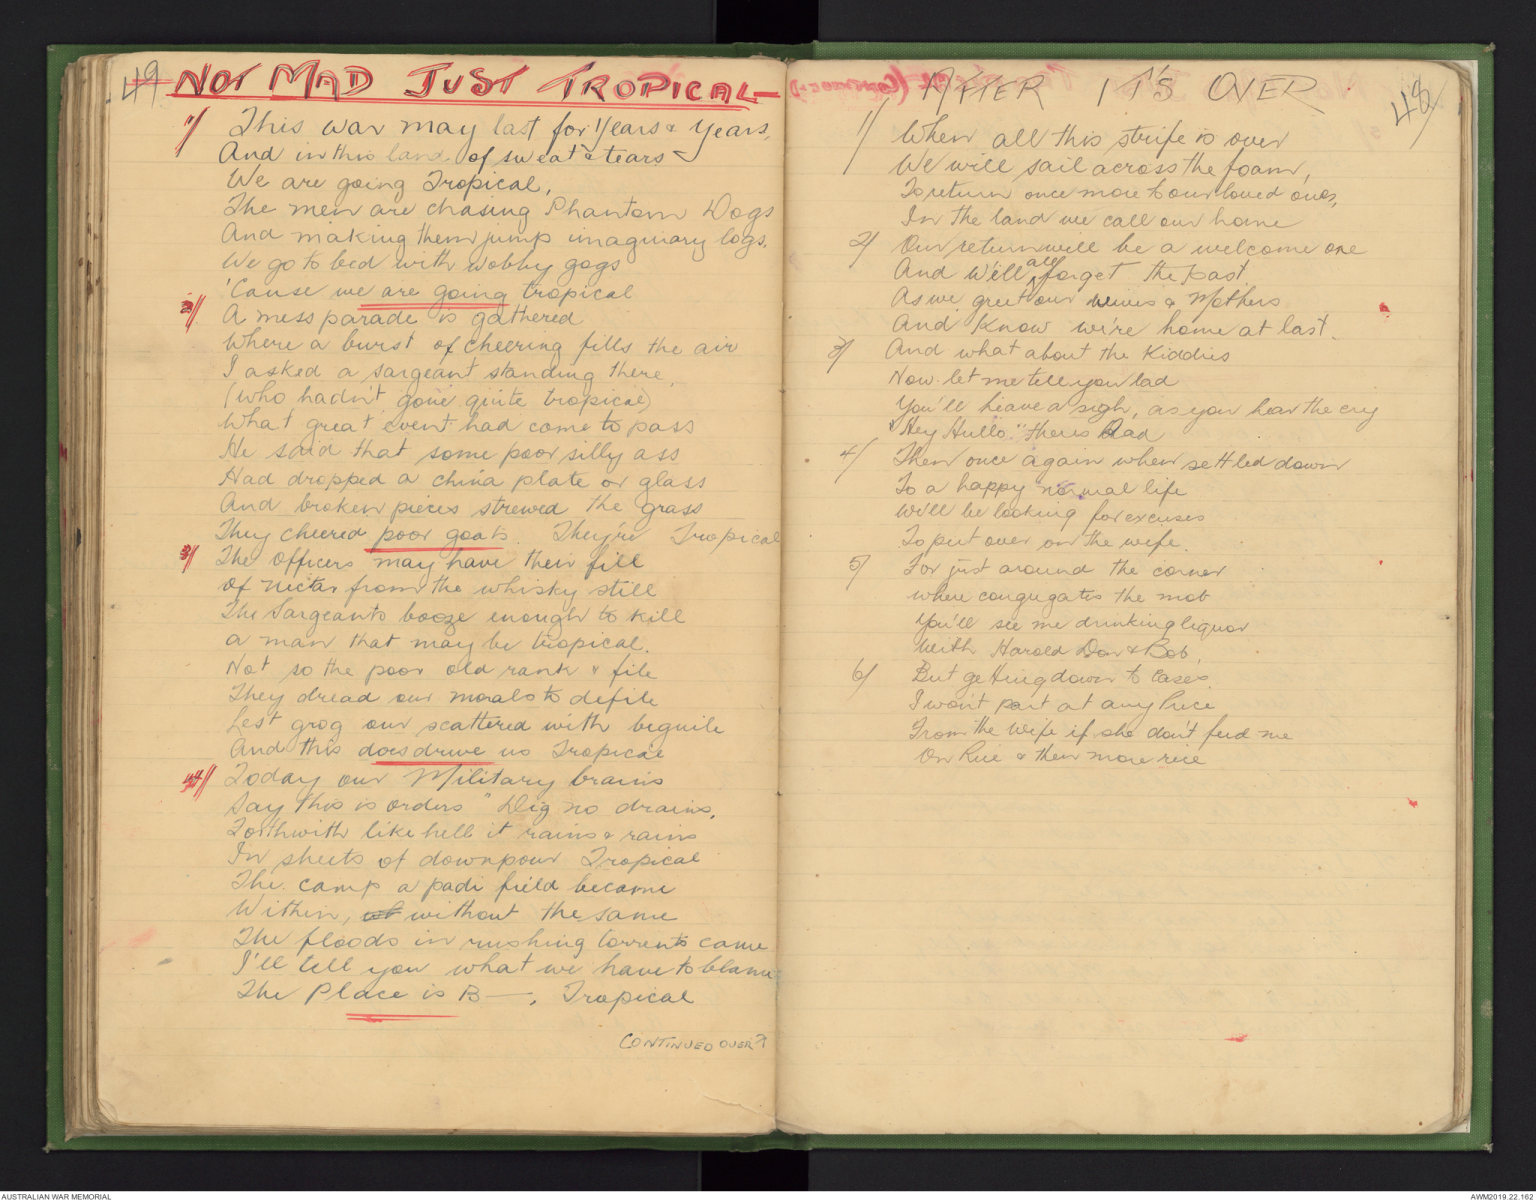 49
NOT MAD JUST TROPICAL-
1/
This war may last for years & years,
And in this land of sweat & tears
We are going Tropical,
The men are chasing Phantom Dogs
And making them jump imaginary logs.
We go to bed with wobbly gogs
'Cause we are going tropical
2//
A mess parade is gathered
Where a burst of cheering fills the air
I asked a sargeant standing there,
(who hadn't gone quite tropical)
What great event had come to pass
He said that some poor silly ass
Had dropped a china plate or glass
And broken pieces strewed the grass
They cheered poor goats. They're Tropical
3//
The Officers may have their fill
of nectar from the whisky still
The Sargeants booze enough to kill
a man that may be tropical.
Not so the poor old rank & file
They dread our morals to defile
Lest grog our scattered with beguile
And this does drive us Tropical
4//
Today our Military brains
Say this is orders " Dig no drains,
Forthwith like hell it rains & rains
In sheets of downpour Tropical
The camp a padi field became
Within, without the same
The floods in rushing torrents came
I'll tell you what we have to blame
The Place is B—, Tropical
CONTINUED OVER
AFTER IT'S OVER
48/
1/
When all this strife is over
We will sail across the foam,
To return once more to our loved ones,
In the land we call our home
2/
Our return will be a welcome one
And we'll all forget the past
As we greet our wives & Mothers
And Know we're home at last.
3/
And what about the Kiddies
Now let me tell you lad
You'll heave a sigh, as you hear the cry
"Hey Hullo" there's Dad
4/
Then once again when settled down
To a happy normal life
We'll be looking for excuses
To put over on the wife.
5/
For just around the corner
where congugates the mob
You'll see me drinking liquor
With Harold Don & Bob,
6/
But getting down to cases
I won't part at any Price
From the Wife if she don't feed me
On Rice & then more rice
AUSTRALIAN WAR MEMORIAL
AWM2019.22.162